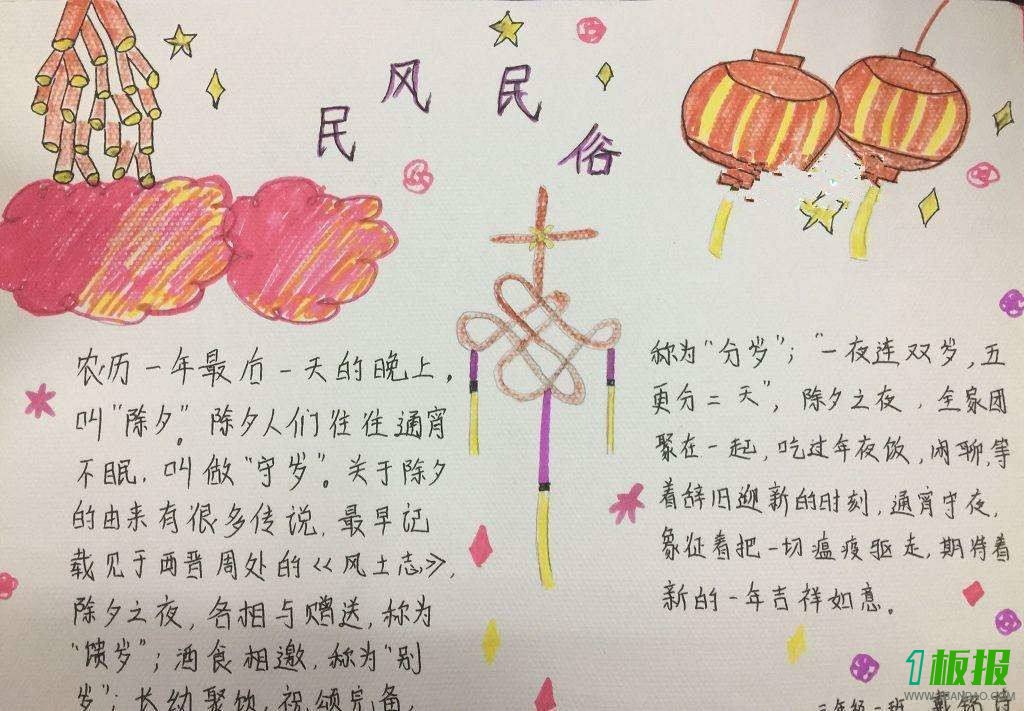 民风民俗
农历一年最后一天的晚上，
叫“除夕”。除夕人们往往通宵
不眠，叫做“守岁”。关于除夕
的由来有很多传说，最早记
载见于两晋周处的《风土志》，
除夕之夜，各相与赠送，称为
“馈岁”；酒食相邀，称为“别
岁”；长幼聚饮，祝颂完备，
称为“分岁”；“一夜连双岁，五
更分二天”，除夕之夜，全家团
聚在一起，吃过年夜饭，闲聊，等
着辞旧迎新的时刻，通宵守夜，
象征着把一切瘟疫驱走，期待着
新的一年吉祥如意。
1板报